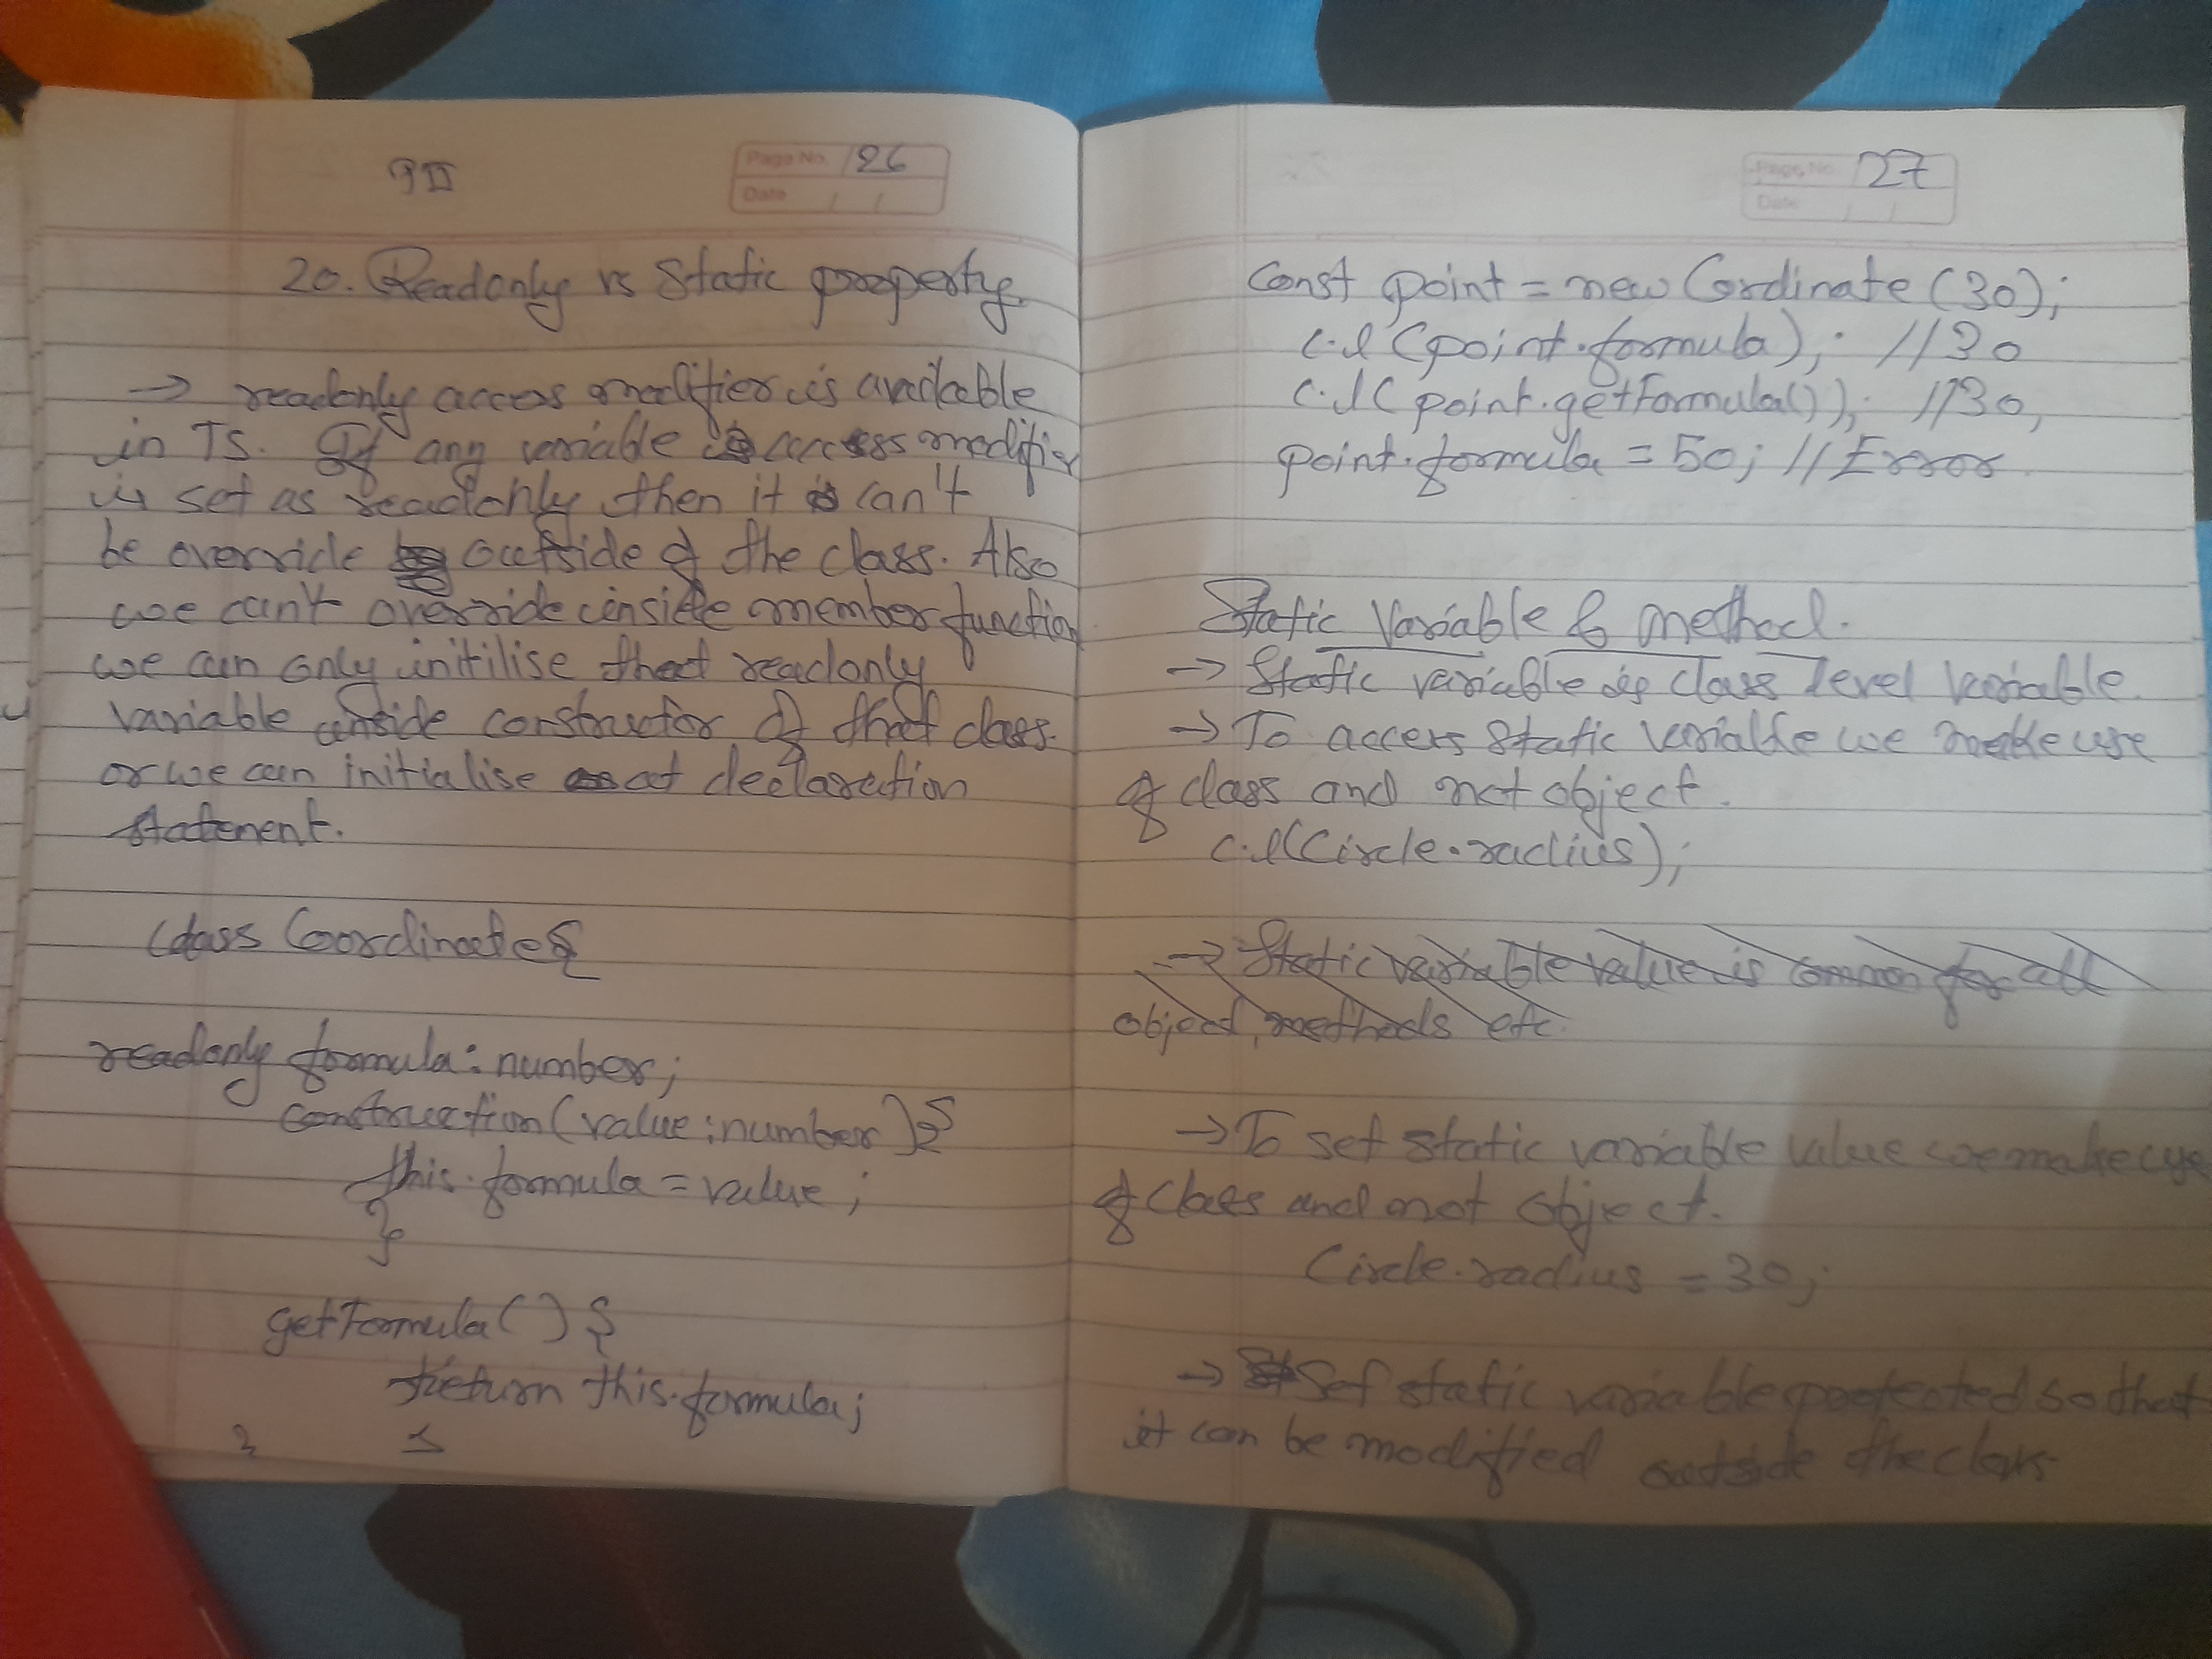 PII
Page No. 26
Date / /
20. Readonly vs Static property.
→ readonly access modifier is available
in TS. If any variable access modifier
is set as readonly then it can't
be override outside of the class. Also
we can't override inside member function
we can only initilise that readonly
variable inside constructor of that class.
or we can initialise at declaration
statement.
Class Coordinate{
readonly formula: number;
construction(value:number){
this.formula = value;
}
getFormula(){
return this.formula;
}
}
Page No. 27
Date / /
Const point = new Cordinate(30);
c.d(point.formula); //30
c.d(point.getFormula()); //30,
point.formula = 50; //Error.
Static Variable & method.
→ Static variable is class level variable.
→ To access static variable we make use
of class and not object.
c.d(Circle.radius);
→ Static variable value is common for all
object, methods etc.
→ To set static variable value we make use
of class and not object.
Circle.radius = 30;
→ Set static variable protected so that
it can be modified outside the class.